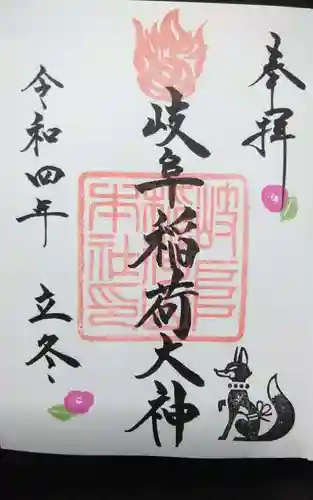 奉拝
岐阜稲荷大神
岐阜稲荷本社印
令和四年 立冬